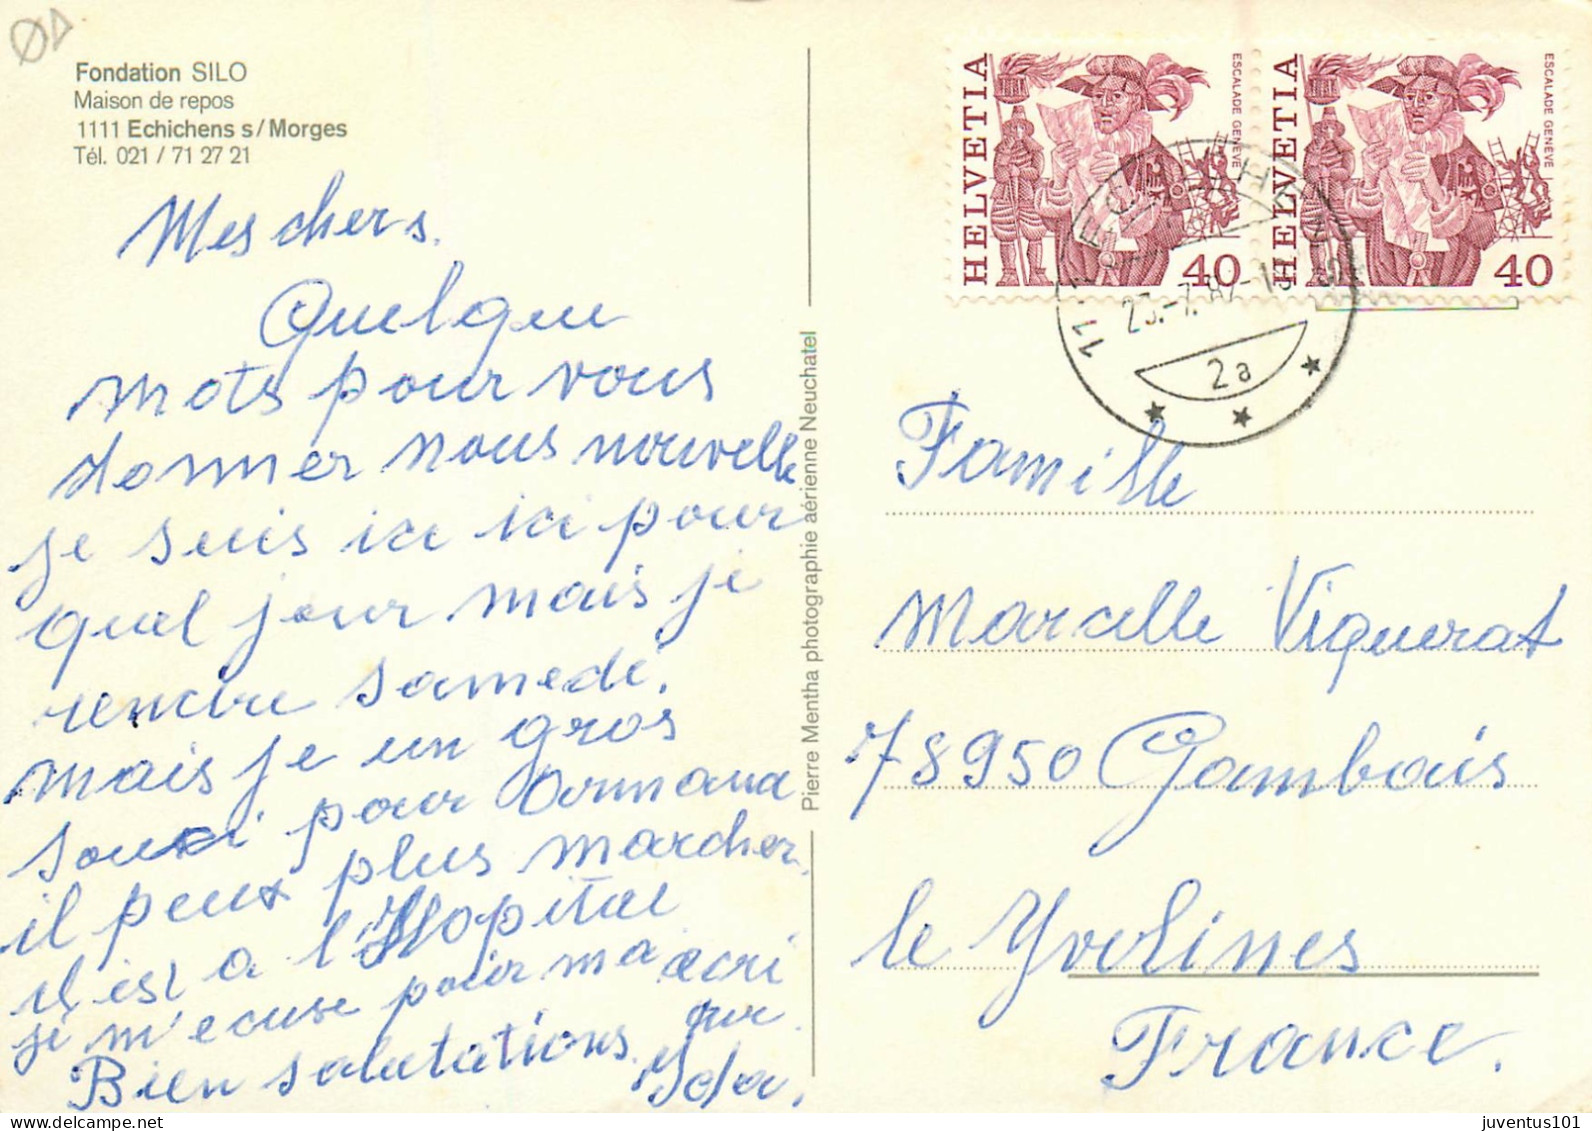 Fondation SILO
Maison de repos
1111 Echichens s/Morges
Tél. 021 / 71 27 21
Mes chers.
Quelque
mots pour vous
donner nous nouvelle
je suis ici ici pour
quel jour mais je
rentre samedi.
mais je un gros
souci pour Armand
il peux plus marcher.
il est a l'Hopital
je m'ecuse pour ma ecri
ure.
Bien salutations. Ida.
Pierre Mentha photographie aérienne Neuchatel
HELVETIA
ESCALADE GENÈVE
40
HELVETIA
ESCALADE GENÈVE
40
23.-7.82-13
2a
Famille
Marcelle Viguerat
78950 Gambais
le Yvelines
France.
juventus101